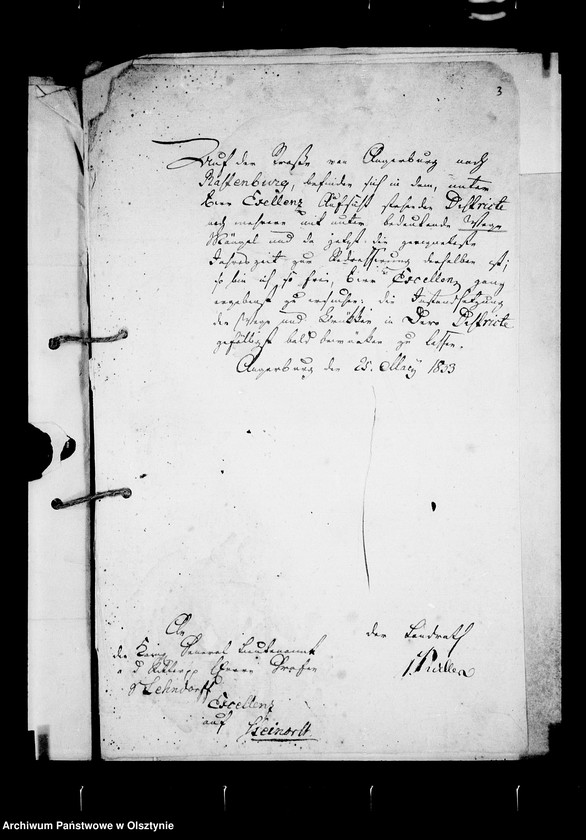 3
Auf der Straße von Angerburg nach
Rastenburg, befinden sich in dem, unter
Euer Excellenz Aufsicht stehenden Districte
noch mehrere mit unter bedeutende Wege
Mängel und da jetzt die geeigneteste
Jahreszeit zur Redressirung derselben ist;
so bin ich so frei, Euer Excellenz ganz
ergebenst zu ersuchen: die Instandsetzung
der Wege und Brücken in Dero Districte
gefälligst bald bewirken zu lassen.
Angerburg den 25. May 1833
An
des Königl General Lieutenannt
u d Ritter Herrn Grafen
v Lehndorff
Excellenz
auf
Steinort
der Landrath
Archiwum Państwowe w Olsztynie